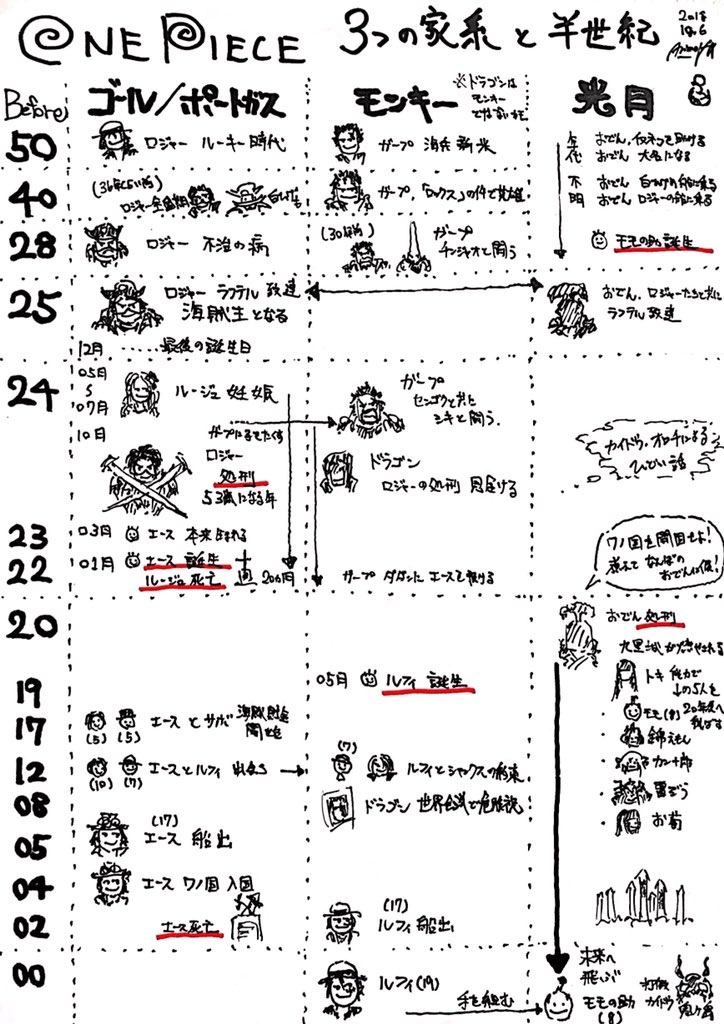 ONE PIECE 3つの家系と半世紀
2018
10.6
Before
ゴール/ポートガス
モンキー
※ドラゴンは
モンキー
ではないかも
光月
50
ロジャー ルーキー時代
ガープ 海兵新米
年代
おでん 大名になる
40
ロジャー全盛期
白ひげ
ガープ,「ロックス」の件で英雄
不明
おでん 白ひげの船に乗る
おでん ロジャーの船に乗る
28
ロジャー 不治の病
(30年前)
ガープ
チンジャオと闘う
モモの助 誕生
25
ロジャー ラフテル 到達
海賊王となる
12月 ……最後の誕生日
おでん,ロジャーたちと共に
ラフテル到達
24
05月
07月
ルージュ 妊娠
ガープ
センゴクと共に
シキと闘う.
10月
ガープに子をたくす
ロジャー
処刑
53歳になる年
ドラゴン
ロジャーの処刑 見届ける
カイドウ,オロチによる
ひどい話
23
03月
エース 本来生まれる
22
01月
エース 誕生
ルージュ 死亡
20ヵ月
ガープ ダダンに エースを預ける
ワノ国を開国せよ!
煮えて なんぼの
おでんに候!
20
おでん 処刑
九里城が燃やされる
トキ 能力で
↓の5人を
20年後へ
飛ばす
モモ(8)
錦えもん
カン十郎
雷ぞう
お菊
19
05月
ルフィ 誕生
17
(5) (5)
エース と サボ
12
(10) (7)
エースとルフィ 出会う
(7)
ルフィとシャンクスの約束
08
ドラゴン 世界会議で危険説
05
(17)
エース 船出
04
エース ワノ国 入国
02
エース死亡
(17)
ルフィ 船出
00
ルフィ(19)
手を組む
未来へ
飛ぶ
モモの助
(8)
打倒
カイドウ
鬼ヶ島